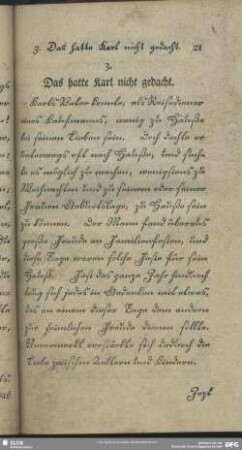 3. Das hatte Karl nicht gedacht. 21
3.
Das hatte Karl nicht gedacht.
Karls Vater konnte, als Reisediener
eines Kaufmannes, wenig zu Hause
bei seinen Lieben sein. Doch dachte er
unterwegs oft nach Hause, und suchte
es möglich zu machen, wenigstens zu
Weihnachten und zu seinem oder seiner
Frauen Geburtstage, zu Hause sein
zu können. Der Mann fand überaus
große Freude an Familienfesten, und
diese Tage waren solche Feste für sein
Haus. Fast das ganze Jahr hindurch
trug sich jedes in Gedanken mit etwas,
das an einem dieser Tage dem andern
zur heimlichen Freude dienen sollte.
Unvermerkt verstärkte sich dadurch die
Liebe zwischen Aeltern und Kindern.
Jetzt
SLUB